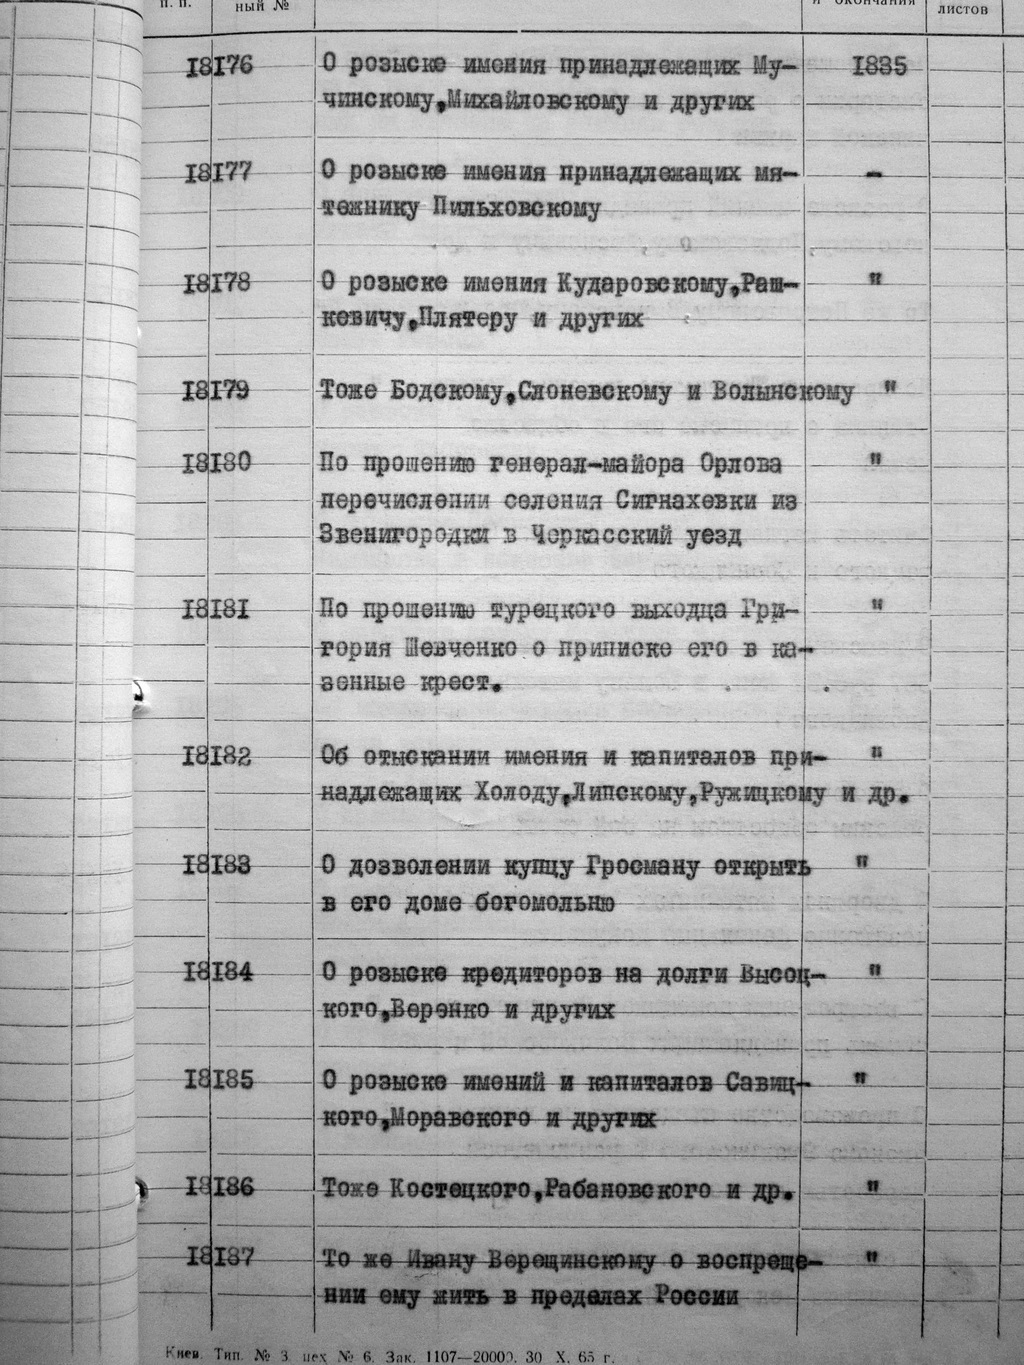 п. п. ный № и окончания листов
18176 О розыске имения принадлежащих Му- 1835
чинскому,Михайловскому и других
18177 О розыске имения принадлежащих мя- -
тежнику Пильховскому
18178 О розыске имения Кударовскому,Раш- "
кевичу,Плятеру и других
18179 Тоже Бодскому,Слоневскому и Волынскому "
18180 По прошению генерал-майора Орлова "
перечислении селения Сигнахевки из
Звенигородки в Черкасский уезд
18181 По прошению турецкого выходца Гри- "
гория Шевченко о приписке его в ка-
зенные крест.
18182 Об отыскании имения и капиталов при- "
надлежащих Холоду,Липскому,Ружицкому и др.
18183 О дозволении купцу Гросману открыть "
в его доме богомольню
18184 О розыске кредиторов на долги Высоц- "
кого,Веренко и других
18185 О розыске имений и капиталов Савиц- "
кого,Моравского и других
18186 Тоже Костецкого,Рабановского и др. "
18187 То же Ивану Верещинскому о воспреще- "
нии ему жить в пределах России
Киев. Тип. № 3, цех № 6. Зак. 1107—20000. 30 X. 65 г.